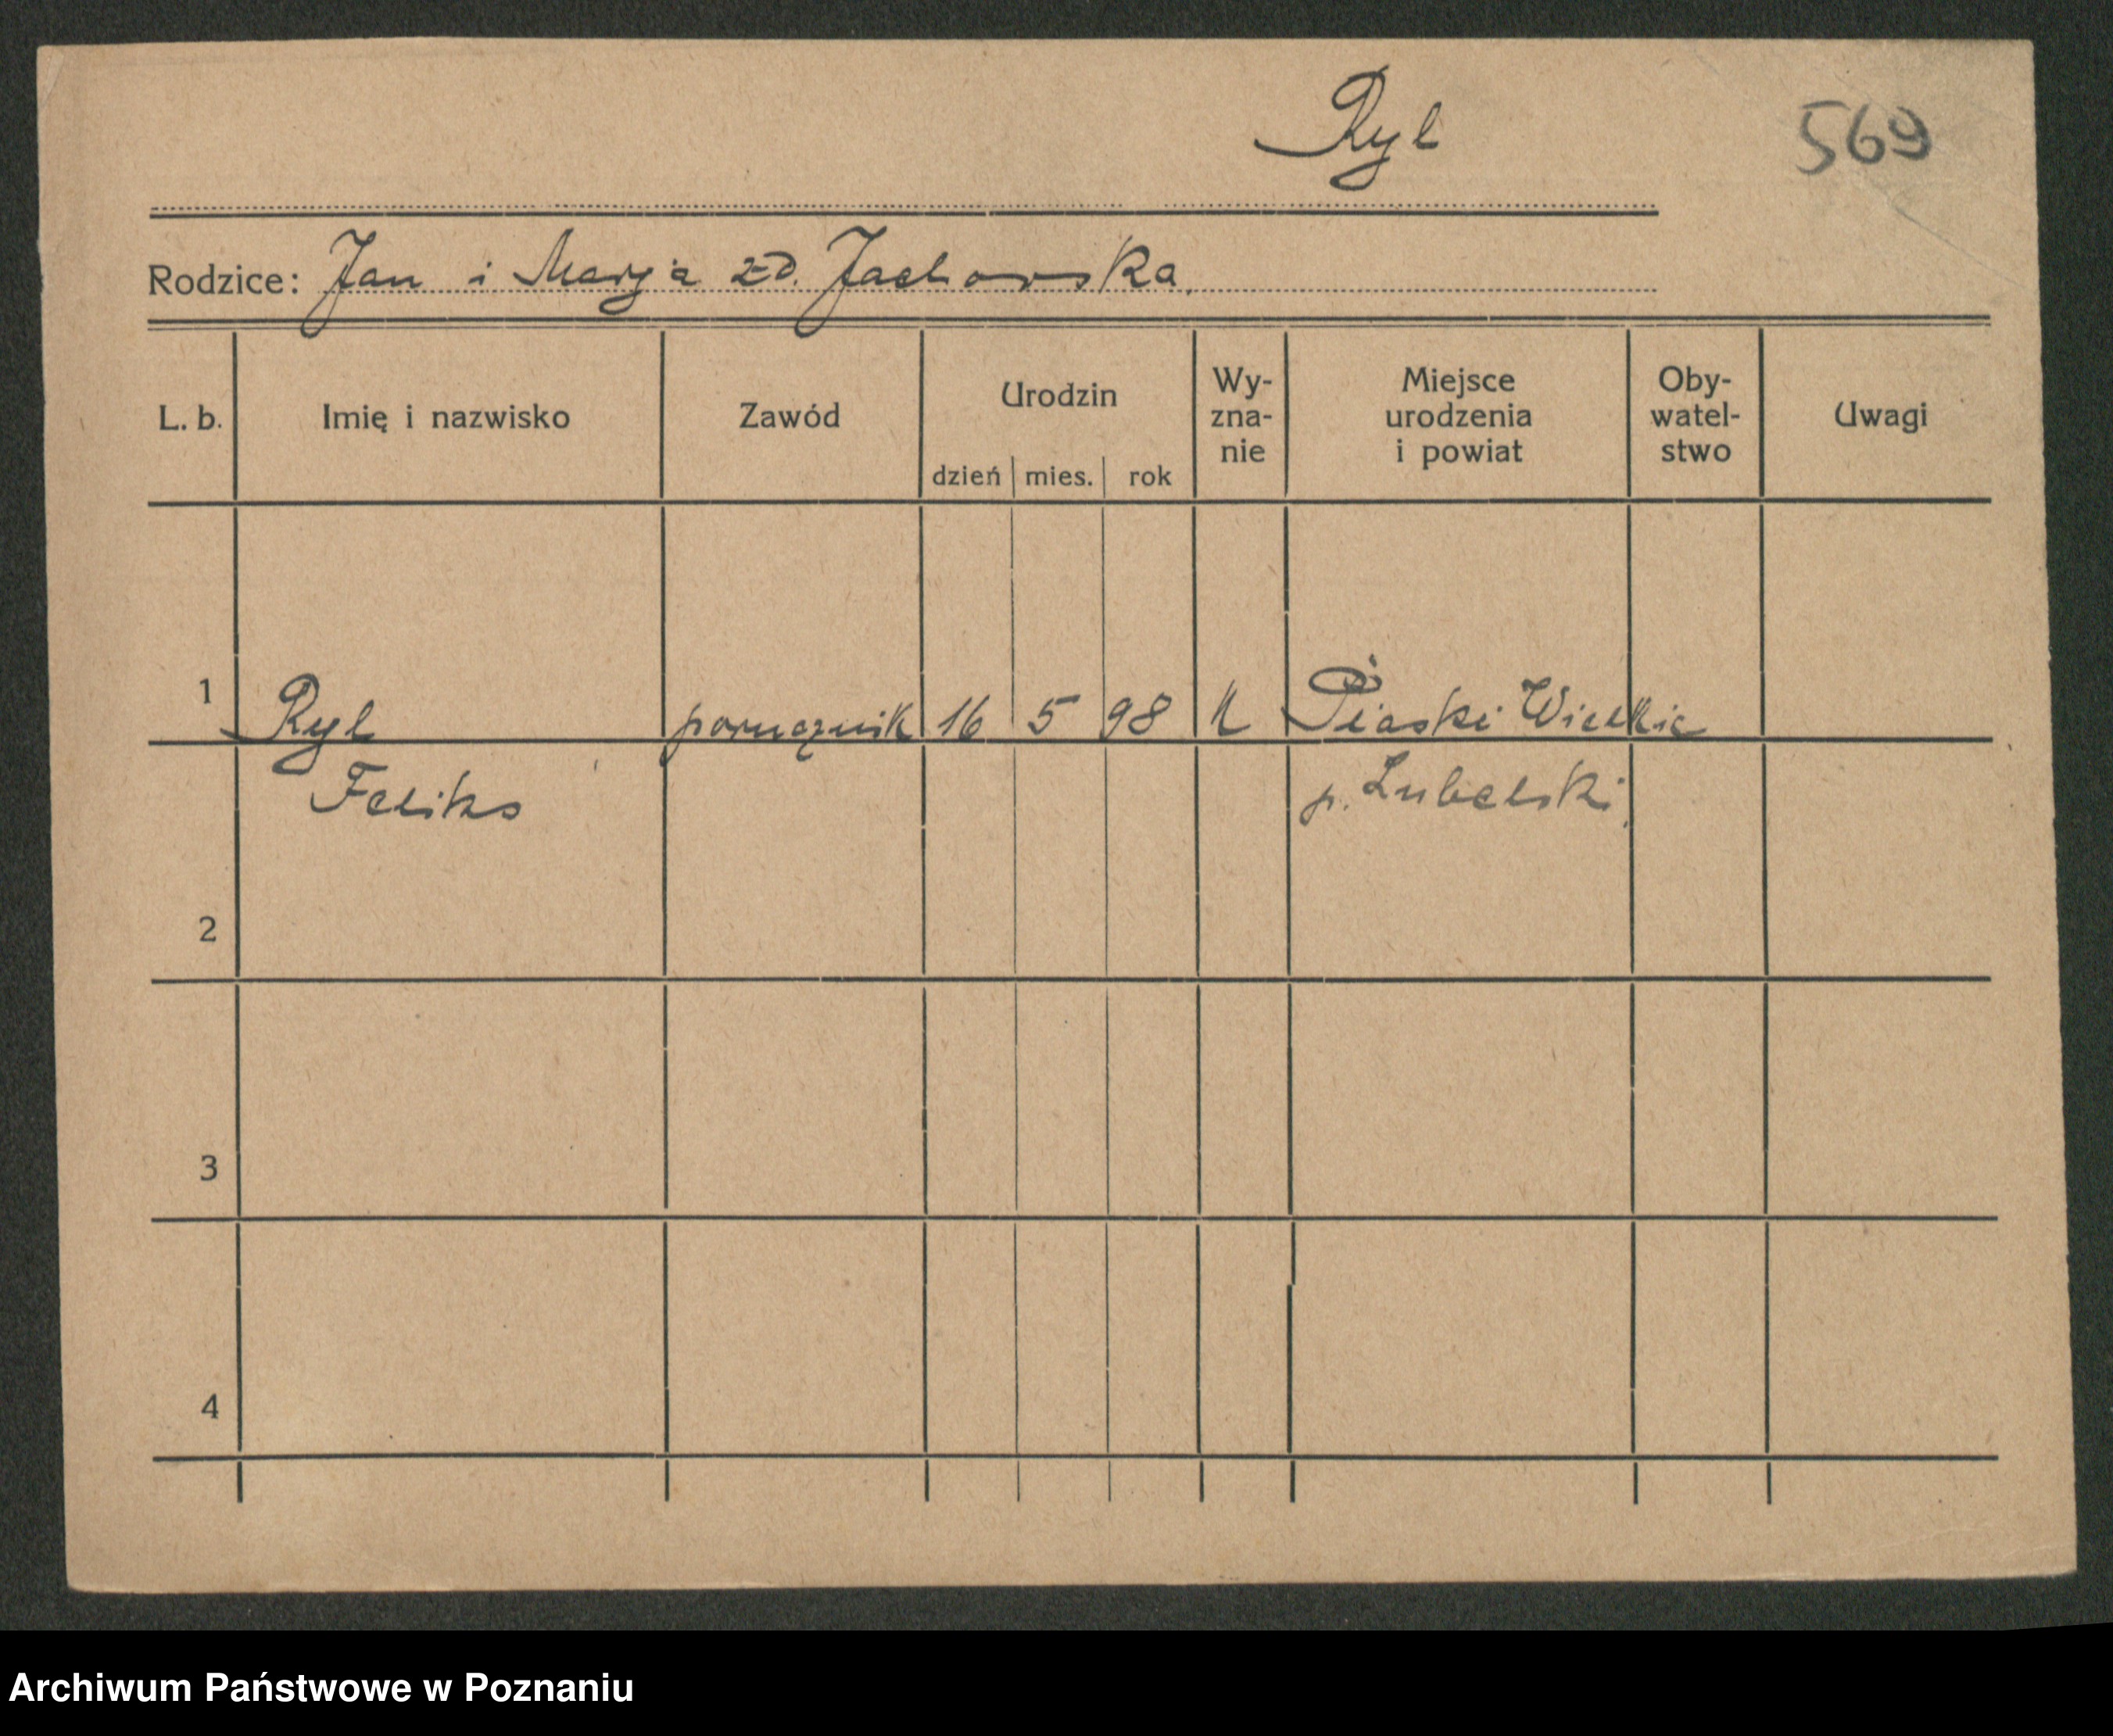 Ryl
569
Rodzice: Jan i Marja zd. Jachowska.
L. b. Imię i nazwisko Zawód Urodzin dzień mies. rok Wy-zna-nie Miejsce urodzenia i powiat Oby-watel-stwo Uwagi
1 Ryl porucznik 16 5 98 K Piaski Wielkie
Feliks p. Lubelski
2
3
4
Archiwum Państwowe w Poznaniu